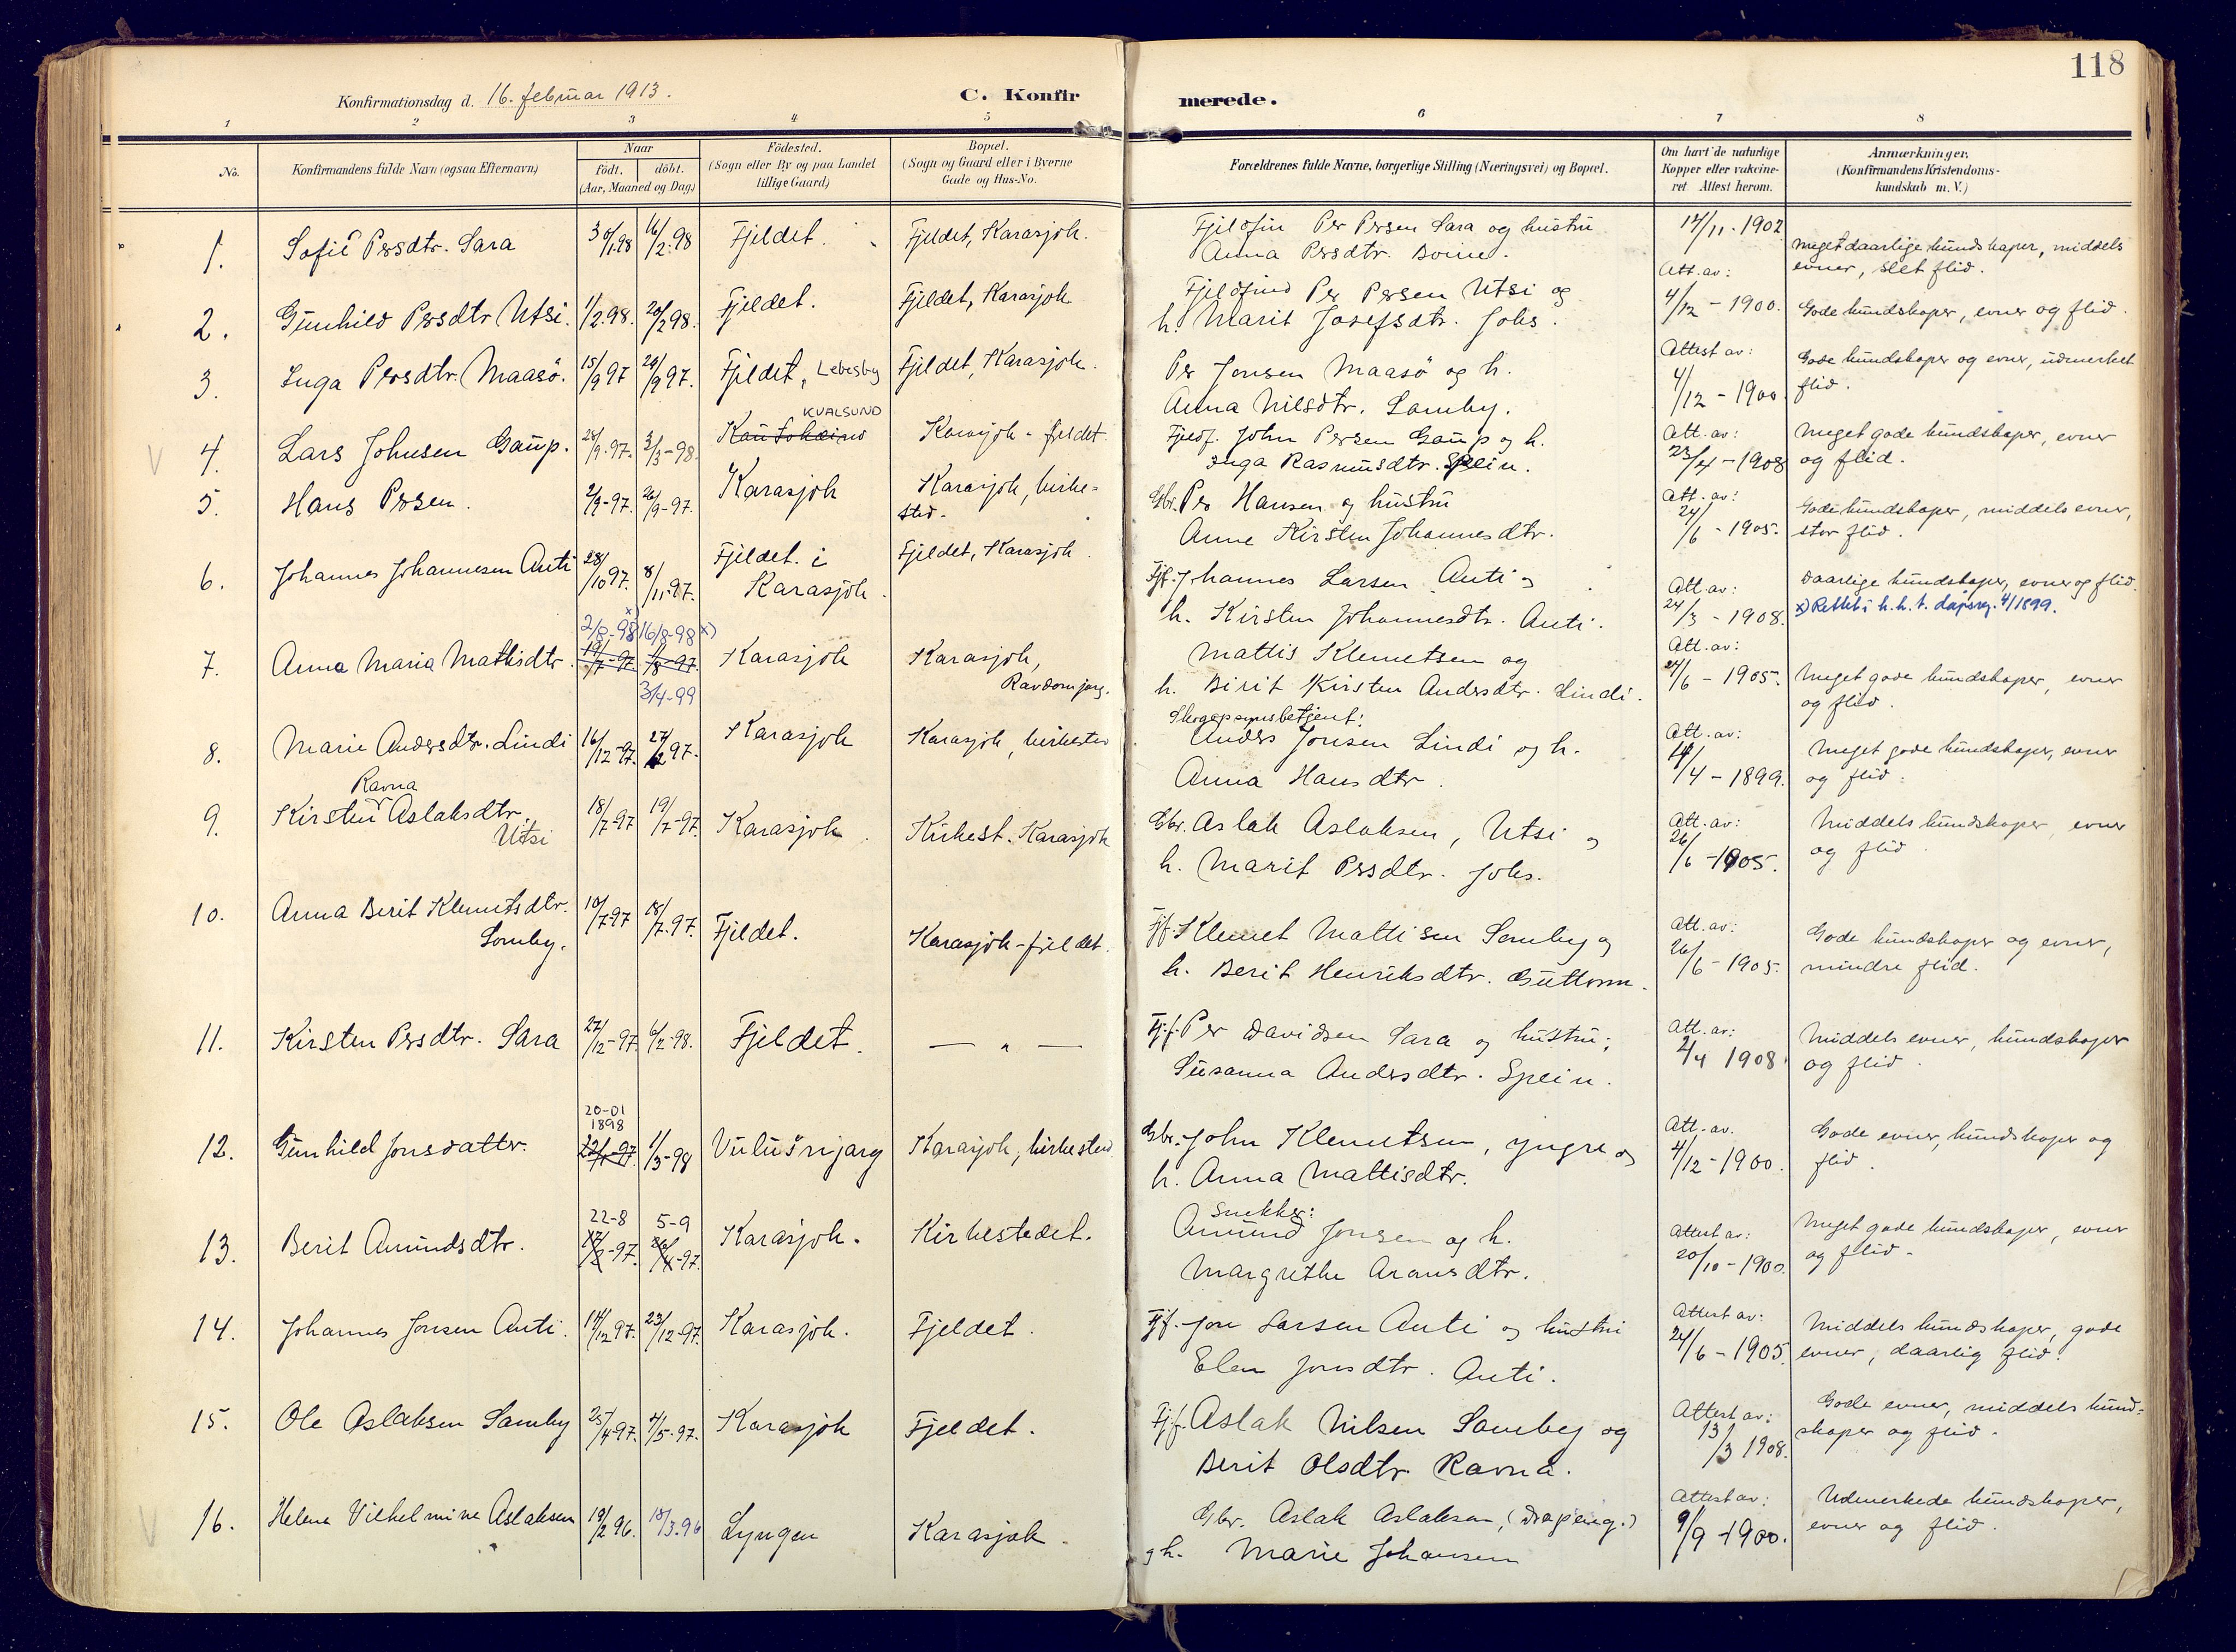 118
Konfirmationsdag d. 16. februar 1913.
C. Konfir
merede.
1 2 3 4 5 6 7 8
No.
Konfirmandens fulde Navn (ogsaa Efternavn)
Naar
födt. döbt.
(Aar, Maaned og Dag)
Födested.
(Sogn eller By og paa Landet
tillige Gaard)
Bopæl.
(Sogn og Gaard eller i Byerne
Gade og Hus-No.
Forældrenes fulde Navne, borgerlige Stilling (Næringsvei) og Bopæl.
Om havt de naturlige
Kopper eller vakcine-
ret Attest herom.
Anmærkninger.
(Konfirmandens Kristendoms-
kundskab m. V.)
1. Sofie Persdtr. Sara 30/1.98 16/2.98 Fjeldet. Fjeldet, Karasjok. Fjeldfin Per Persen Sara og hustru
Anna Persdtr. Boine.
17/11.1902
meget daarlige kundskaper, middels
evner, slet flid.
2. Gunhild Persdtr Utsi. 1/2.98. 20/2 98. Fjeldet. Fjeldet, Karasjok Fjeldfind Per Persen Utsi og
h. Marit Josefsdtr. Johs.
Att. av:
4/12 - 1900.
Gode kundskaper, evner og flid.
3. Inga Persdtr. Maasö. 15/9 97 26/9 97. Fjeldet, Lebesby Fjeldet, Karasjok. Per Jonsen Maasö og h.
Anna Nilsdtr. Somby.
Attest av:
4/12 - 1900
Gode kundskaper og evner, udmerket
flid.
KVALSUND
4. Lars Johnsen Gaup. 28/9.97. 3/3-98. Kautokeino Karasjok - fjeldet Fjeldf. John Persen Gaup og h.
Inga Rasmusdtr. Spein.
Att. av:
23/4 - 1908
Meget gode kundskaper, evner
og flid.
5. Hans Persen. 2/9-97. 26/9-97. Karasjok Karasjok, kirke-
sted.
Gbr. Per Hansen og hustru
Anne Kirsten Johannesdtr.
Att. av:
24/6 - 1905.
Gode kundskaper, middels evner,
stor flid.
6. Johannes Johannesen Anti 28/10 97. 8/11-97. Fjeldet. i
Karasjok.
Fjeldet, Karasjok. Fjf. Johannes Larsen Anti og
h. Kirsten Johannesdtr. Anti.
Att. av:
24/3 - 1908.
Daarlige kundskaper, evner og flid.
x) Rettet i h. h. t. dåpsreg. 4/1899.
2/8-98 x) 16/8-98 x)
7. Anna Maria Mattisdtr. 19/7-97. 1/8-97. Karasjok Karasjok,
Ravdomjarg.
3/4-99
Mattis Klemetsen og
h. Birit Kirsten Andersdtr. Lindi.
Att. av:
24/6 - 1905.
Meget gode kundskaper, evner
og flid.
8. Marie Andersdtr. Lindi 16/12-97. 27/12 97. Karasjok Karasjok, kirkested
Skogopsynsbetjent:
Anders Jonsen Lindi og h.
Anna Hansdtr.
Att. av:
4/4 - 1899.
Meget gode kundskaper, evner
og flid.
Ravna
9. Kirsten Aslaksdtr.
Utsi
18/7-97 19/7-97. Karasjok. Kirkest. Karasjok Gbr. Aslak Aslaksen, Utsi og
h. Marit Persdtr. Johs.
Att. av:
26/6 - 1905.
Middels kundskaper, evner
og flid.
10. Anna Berit Klemetsdtr.
Somby.
10/7-97 18/7.97. Fjeldet. Karasjok-fjeldet. Fjf. Klemet Mattisen Somby og
h. Berit Henriksdtr. Guttorm.
Att. av:
26/6 - 1905.
Gode kundskaper og evner,
mindre flid.
11. Kirsten Persdtr. Sara 27/12-97. 6/2-98. Fjeldet. — " — Fj.f. Per Davidsen Sara og hustru;
Susanna Andersdtr. Spein.
Att. av:
2/4 1908.
Middels evner, kundskaper
og flid.
20-01
1898
12. Gunhild Jonsdatter. 22/1-97. 1/3-98 Vulušnjarg Karasjok, kirkested. Gbr. John Klemetsen, yngre og
h. Anna Mattisdtr.
Att. av.
4/12 - 1900.
Gode evner, kundskaper og
flid.
22-8 5-9
13. Berit Amundsdtr. 17/2-97. 26/4-97. Karasjok. Kirkestedet.
Snekker:
Amund Jonsen og h.
Margrethe Aronsdtr.
Attest av:
20/10 - 1900.
Meget gode kundskaper, evner
og flid.
14. Johannes Jonsen Anti. 14/12 97. 23/12-97. Karasjok. Fjeldet. Fjf. Jon Larsen Anti og hustru
Elen Jonsdtr. Anti.
Attest av:
24/6 - 1905.
Middels kundskaper, gode
evner, daarlig flid.
15. Ole Aslaksen Somby 25/4-97. 4/5-97. Karasjok Fjeldet. Fjf. Aslak Nilsen Somby og
Berit Olsdtr Ravna.
Attest av:
13/3 1908.
Gode evner, middels kund-
skaper og flid.
16. Helene Vilhelmine Aslaksen 19/2 96. 18/3.96 Lyngen Karasjok. Gbr. Aslak Aslaksen,
og h. Marie Johansen
Attest av:
9/9 - 1900.
Udmerkede kundskaper,
evner og flid.